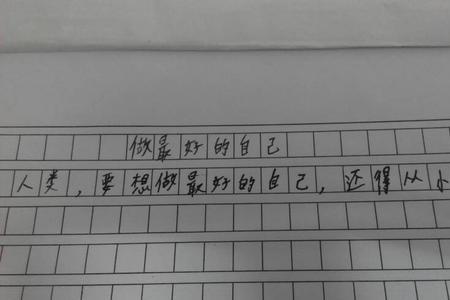 做最好的自己
人类,要想做最好的自己,还得从小